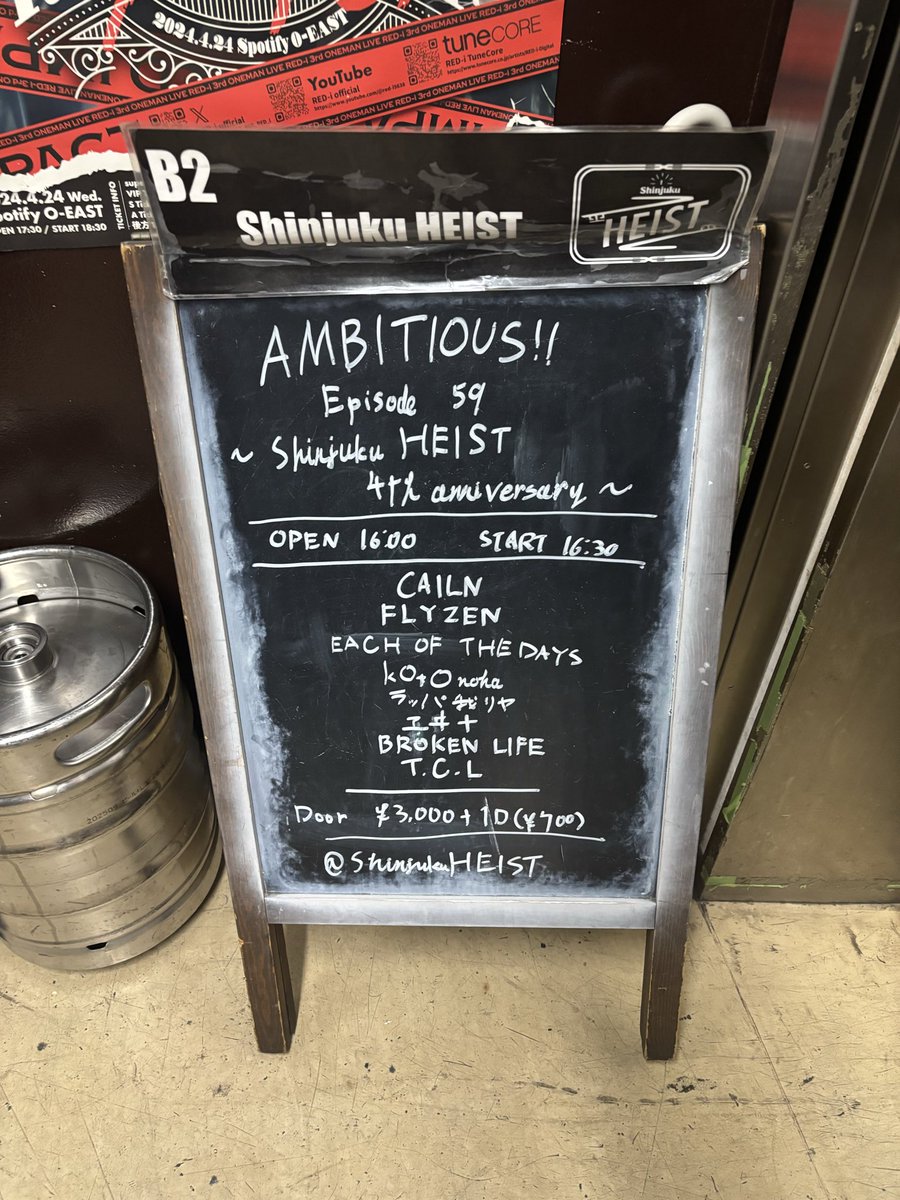 2024.4.24 Spotify O-EAST
RED-i 3rd ONEMAN LIVE RED-i 3rd ONEMAN LIVE
YouTube
RED-i official
tuneCORE
RED-i TuneCore
24.4.24 Wed.
potify O-EAST
PEN 17:30 / START 18:30
TICKET INFO
B2
Shinjuku HEIST
Shinjuku
HEIST
AMBITIOUS!!
Episode 59
~ Shinjuku HEIST
4th anniversary ~
OPEN 16:00 START 16:30
CAILN
FLYZEN
EACH OF THE DAYS
kOtOnoha
ラッパ
BROKEN LIFE
T.C.L
Door ¥3,000+1D(¥700)
@ShinjukuHEIST